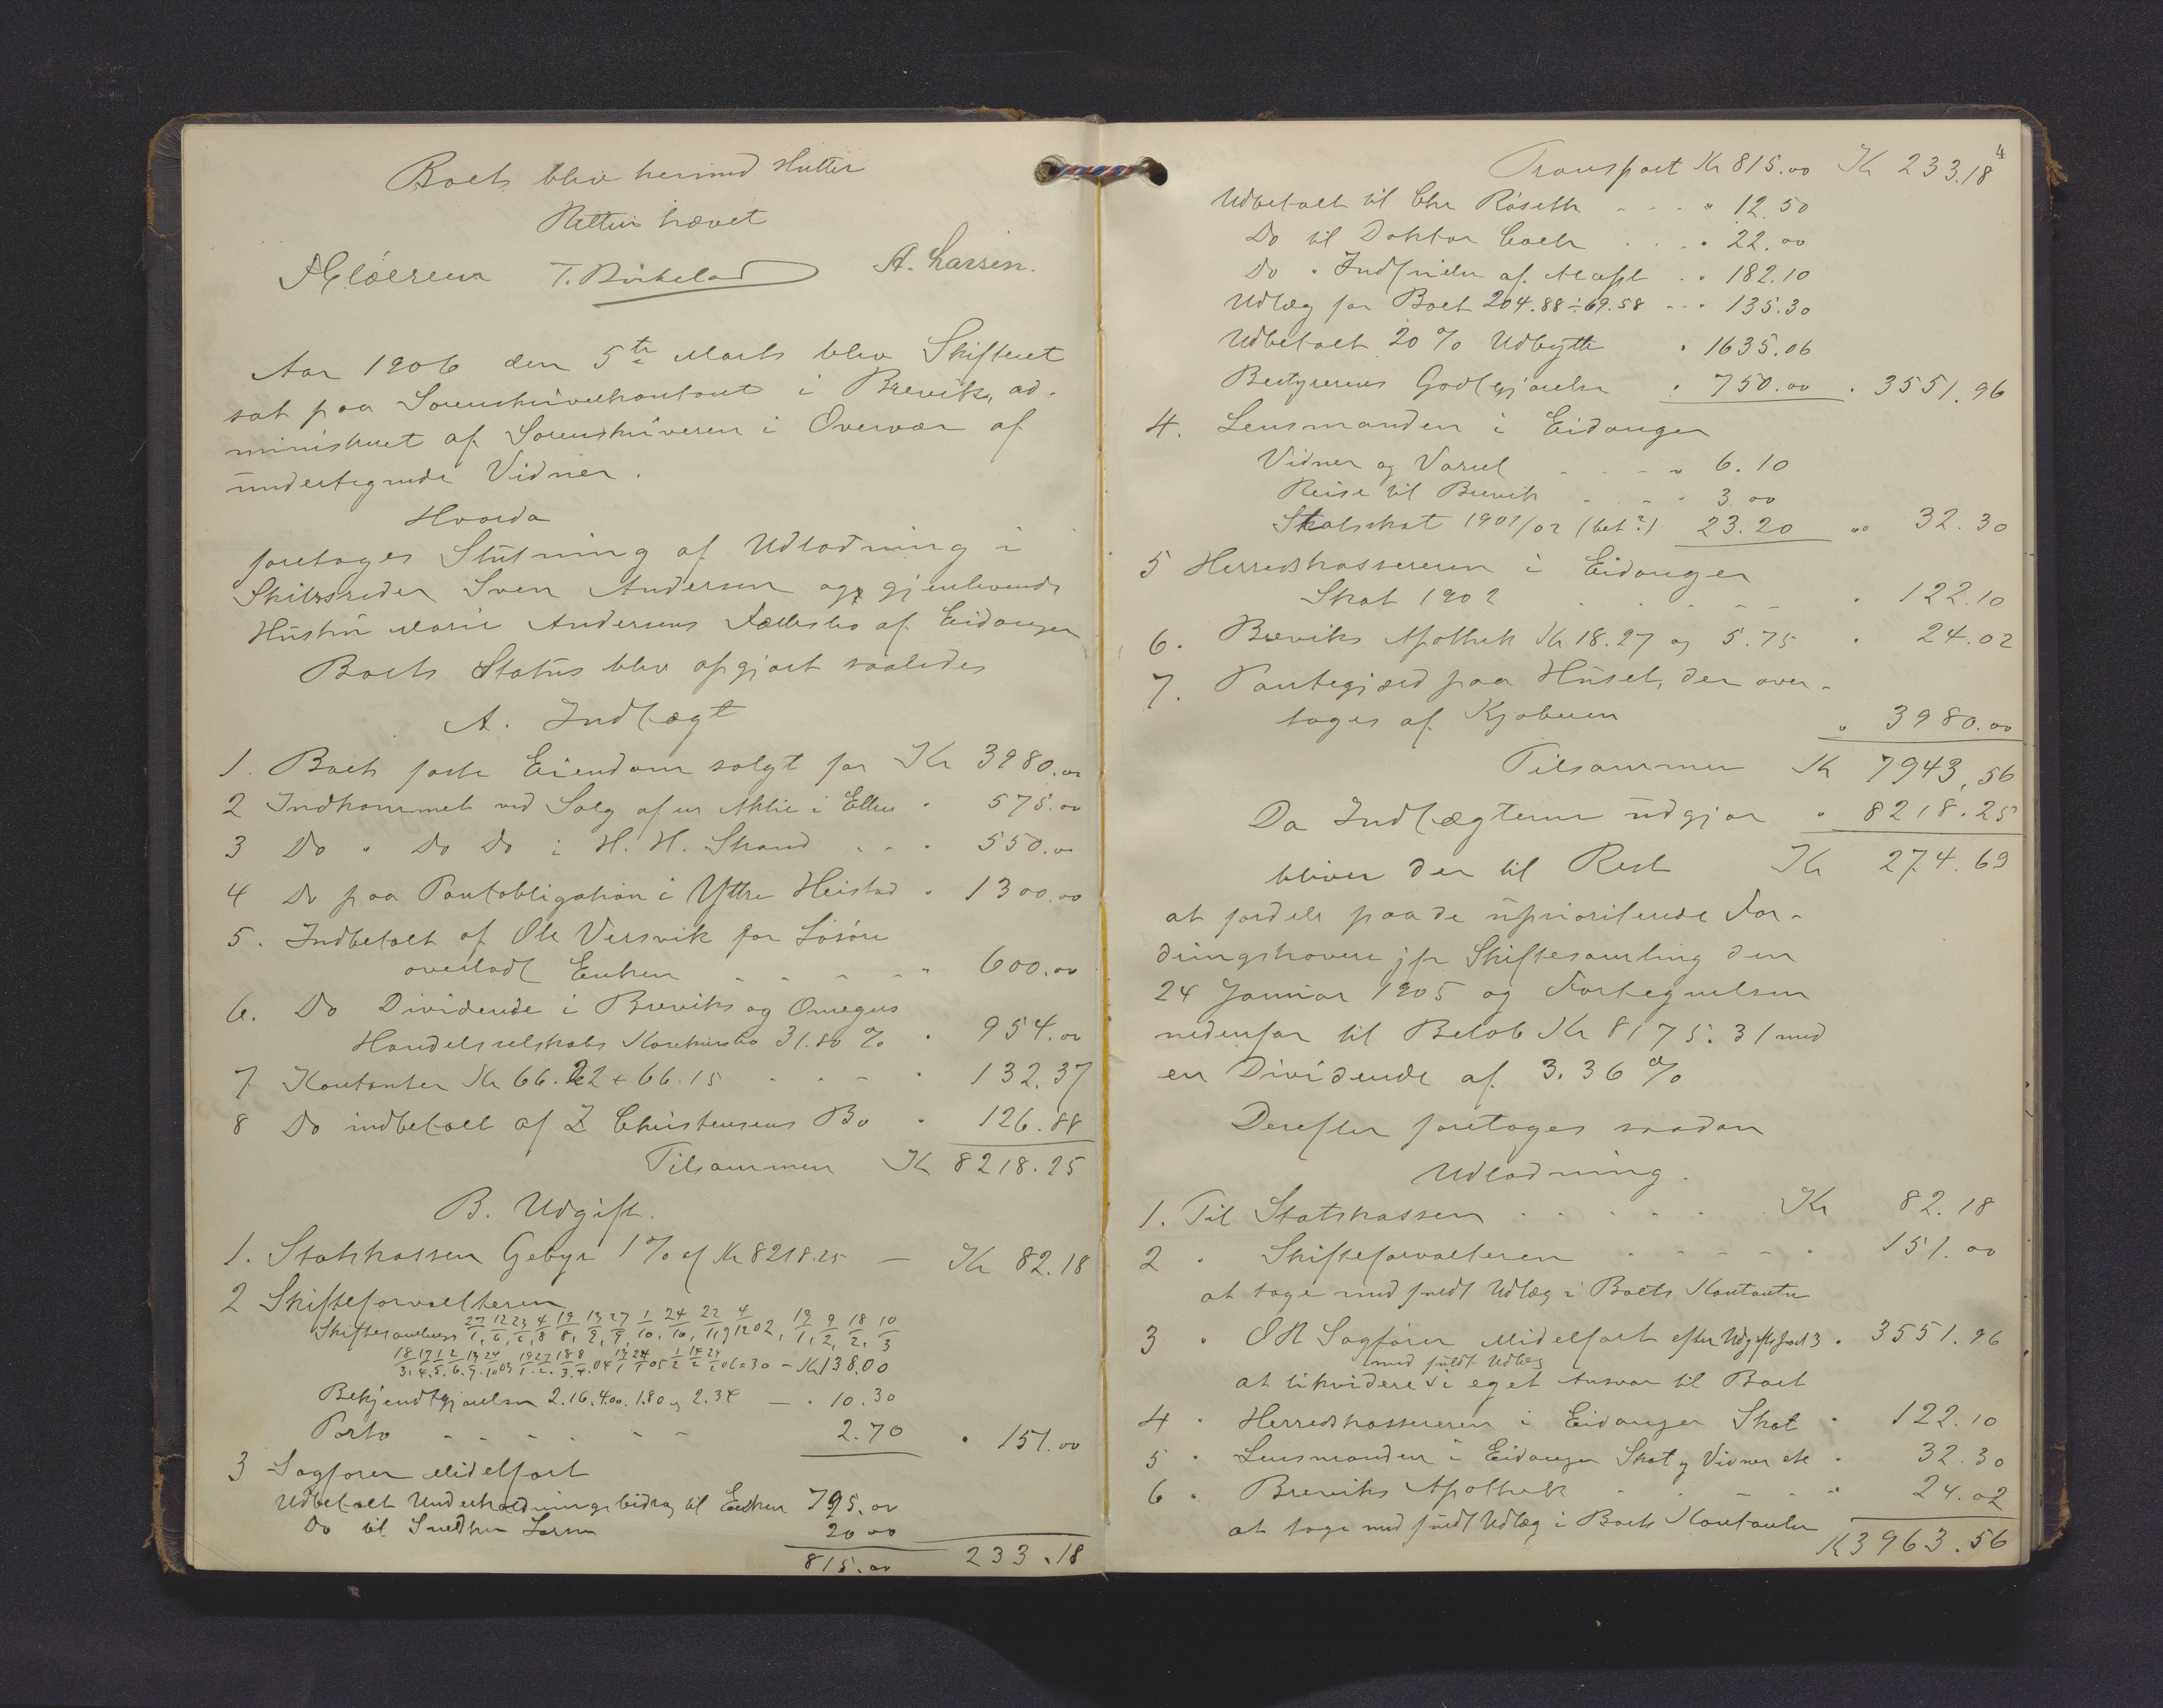 Boets blev hermed sluttet
Retten hævet
T. Birkeland A. Larsen.
Aar 1906 den 5te Marts blev Skifteret
sat paa Sorenskriverkontoret i Brevik, ad-
ministreret af Sorenskriveren i Overvær af
undertegnede Vidner.
Hvorda
foretoges Slutning af Udlodning i
Skibsreder Sven Andersen og gjenlevende
Hustru Marie Andersens Fællesbo af Eidanger
Boets Status blev opgjort saaledes
A. Indtægt
1. Boets faste Eiendom solgt for Kr 3980.00
2 Indkommet ved Salg af en Aktie i Ellen " 575.00
3 Do " Do Do i H. H. Strand " 550.00
4 Do paa Pantobligation i Yttre Heistad " 1300.00
5. Indbetalt af Ole Versvik for Løsøre
overladt Enken " 600.00
6. Do Dividende i Breviks og Omegns
Handelsselskabs Konkursbo 31.80 % " 954.00
7 Kontanter Kr 66.22 + 66.15 " 132.37
8 Do indbetalt af Z Christensens Bo " 126.88
Tilsammen Kr 8218.25
B. Udgift.
1. Statskassen Gebyr 1 % af Kr 8218.25 — Kr 82.18
2 Skifteforvalteren
Skiftesamlinger 27/1, 12/6, 23/6, 4/8, 19/8, 13/9, 27/9, 1/10, 24/10, 22/11, 4/12 02, 13/1, 9/2, 18/2, 10/3
= 30 — Kr 138.00
Bekjendtgjørelsen 2.16. 4.00. 1.80 og 2.34 — " 10.30
Porto 2.70 " 151.00
3 Sagfører Midelfart
Udbetalt Underholdningsbidrag til Enken 795.00
Do til Snedker Larsen 20 00
815.00 233.18
4
Transport Kr 815.00 Kr 233.18
Udbetalt til Chr Røseth " 12.50
Do til Doktor Coch " 22.00
Do " Indfrielse af 182.10
Udlæg for Boet 204.88 ÷ 69.58 " 135.30
Udbetalt 20 % Udbytte " 1635.06
Bestyrerens Godtgjørelse " 750.00 " 3551.96
4. Lensmanden i Eidanger
Vidner og Varsel " 6.10
Reise til Brevik " 3 00
Statsskat 1901/02 (bet?) 23.20 " 32.30
5 Herredskassereren i Eidanger
Skat 1902 " 122.10
6. Breviks Apothek Kr 18.27 og 5.75 " 24.02
7. Pantegjæld paa Huset, der over-
tages af Kjøberen " 3980.00
Tilsammen Kr 7943.56
Da Indtægterne udgjør " 8218.25
bliver der til Rest Kr 274.69
at fordele paa de uprioriterede For-
dringshavere jfr Skiftesamling den
24 Januar 1905 og Fortegnelsen
nedenfor til Beløb Kr 8175.31 med
en Dividende af 3.36 %
Derefter foretoges saadan
Udlodning.
1. Til Statskassen Kr 82.18
2 " Skifteforvalteren " 151.00
at tage med fuldt Udlæg i Boets Kontanter
3 " O R Sagfører Midelfart efter Udgifts Post 3 " 3551.96
med fuldt Udlæg
at likvidere i eget Ansvar til Boet
4 " Herredskassereren i Eidanger Skat " 122.10
5 " Lensmanden i Eidanger Skat og Vidner etc " 32.30
6 " Breviks Apothek " 24.02
at tage med fuldt Udlæg i Boets Kontanter
Kr 3963.56